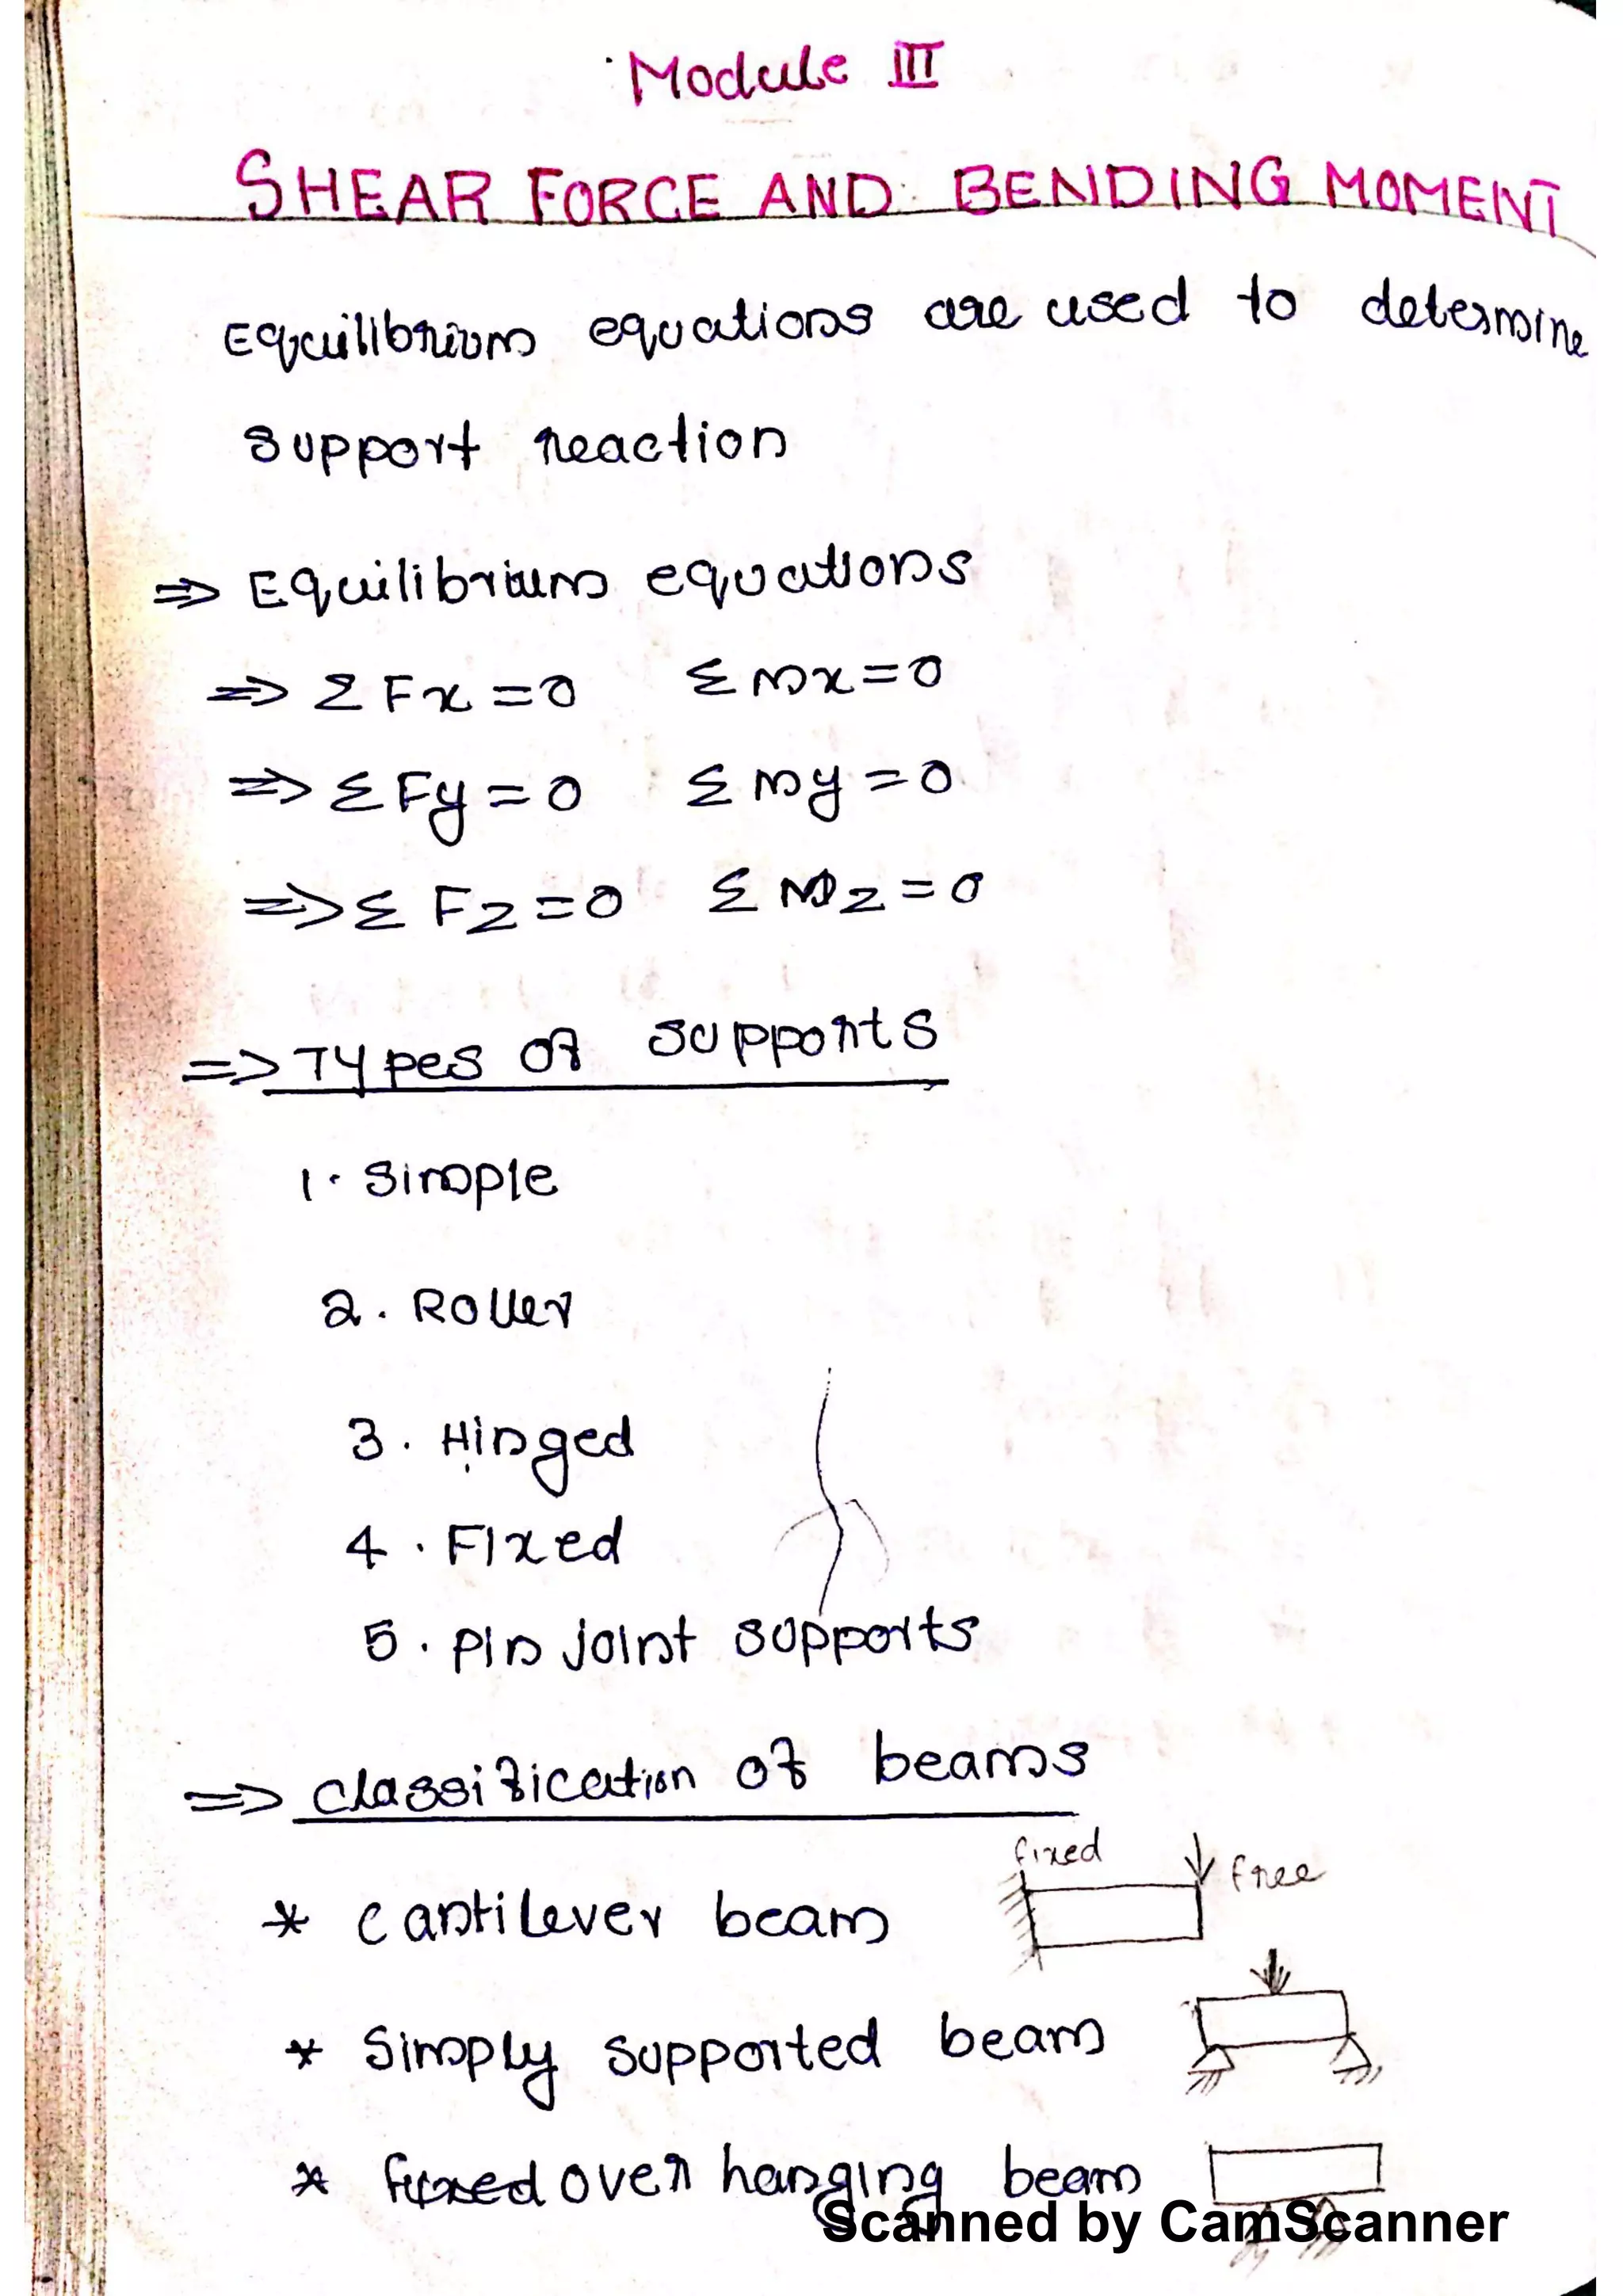 Module III
SHEAR FORCE AND BENDING MOMENT
Equilibrium equations are used to determine
support reaction
=> Equilibrium equations
=> Σ Fx = 0 Σ Mx = 0
=> Σ Fy = 0 Σ My = 0
=> Σ Fz = 0 Σ Mz = 0
=> Types of supports
1. Simple
2. Roller
3. Hinged
4. Fixed
5. Pin joint supports
=> classification of beams
fixed
free
* Cantilever beam
* Simply supported beam
* fixed over hanging beam
Scanned by CamScanner